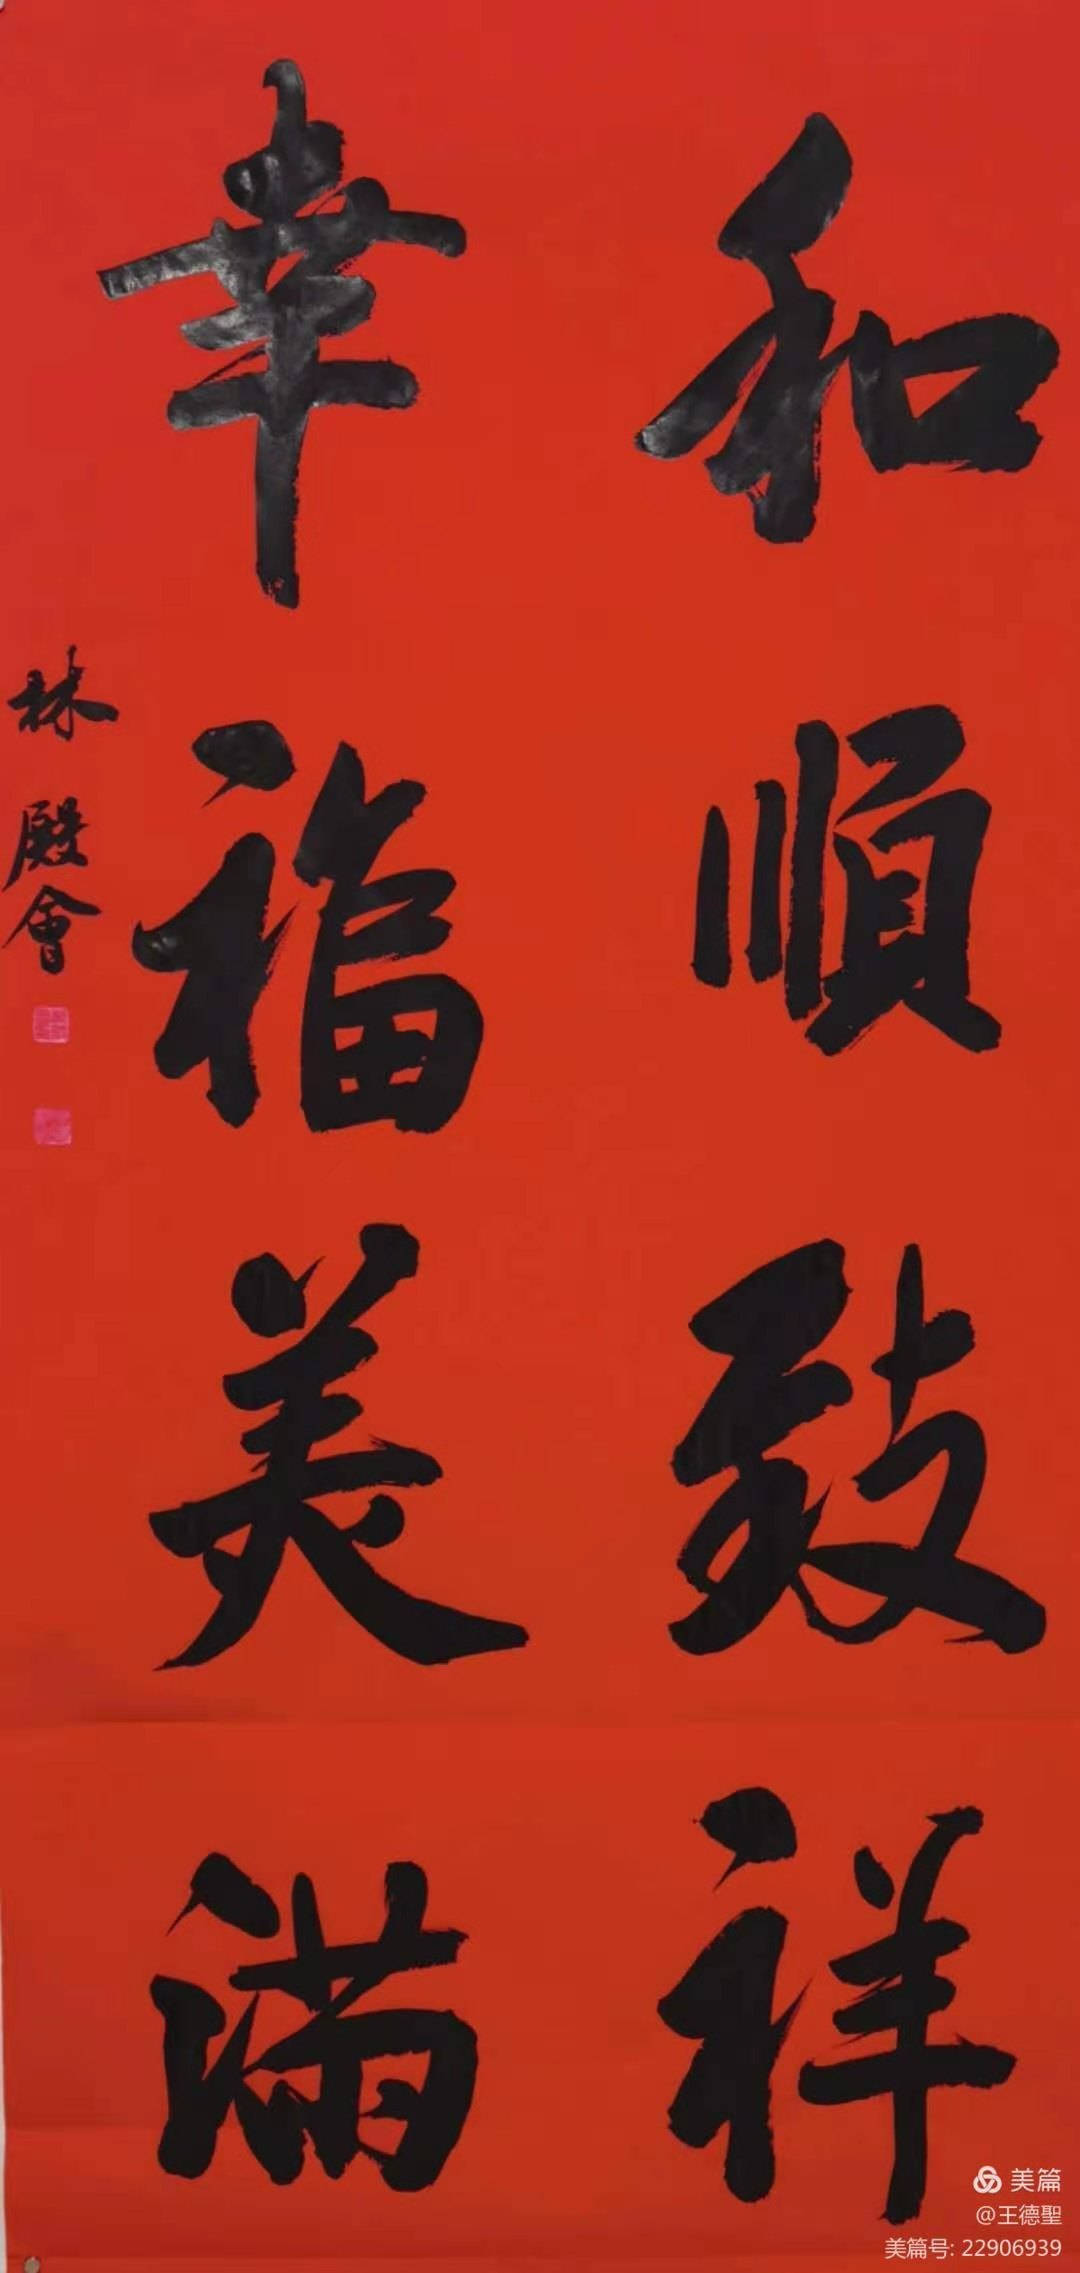 和順致祥
幸福美滿
林殿會
美篇
@王德聖
美篇号: 22906939